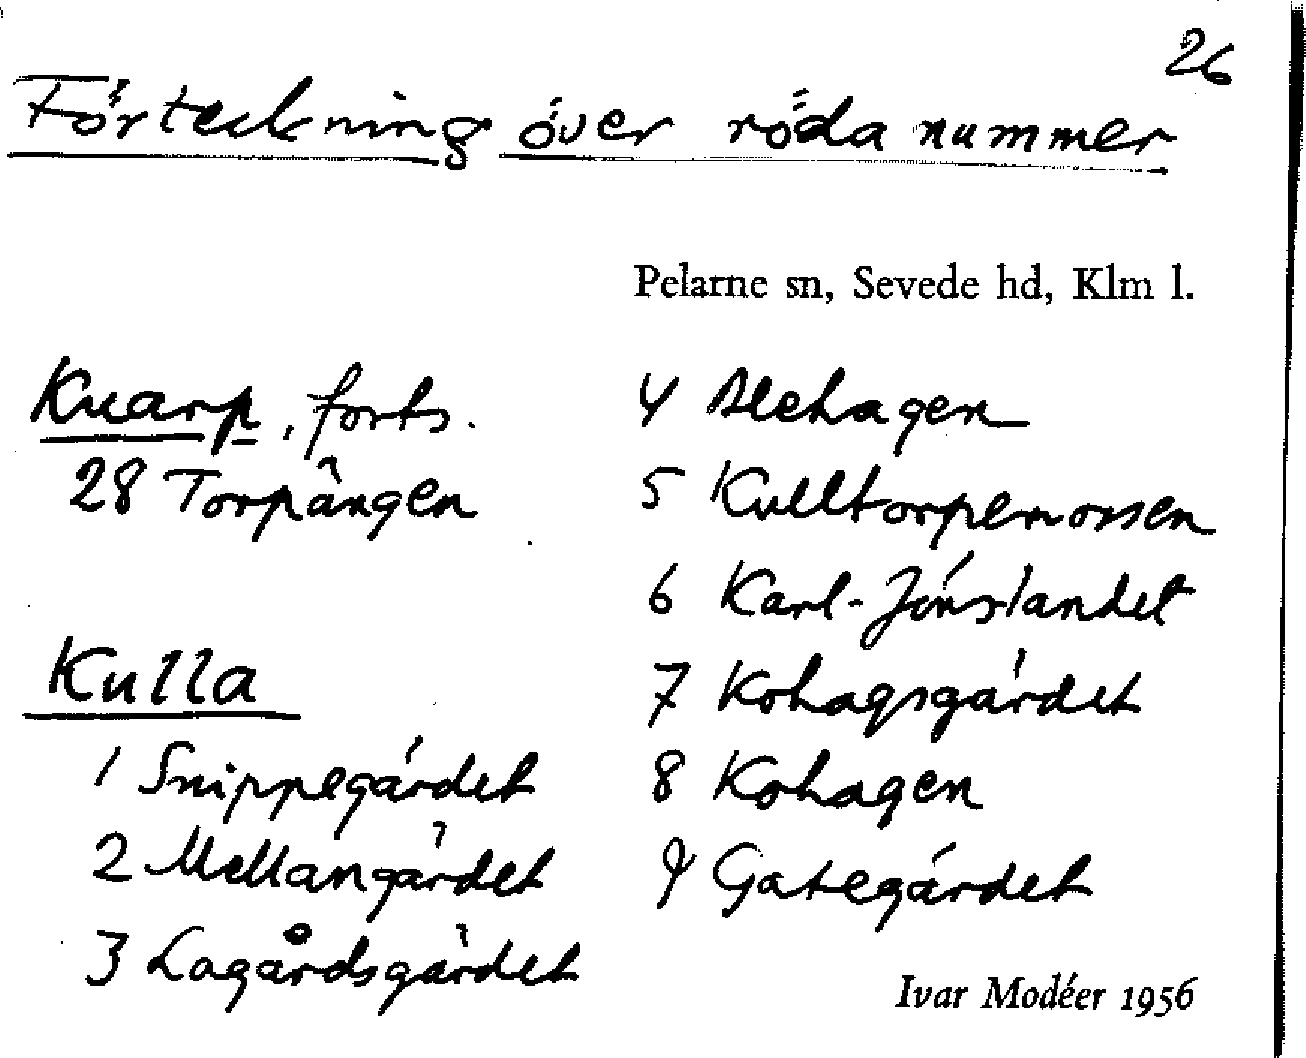 26
Förteckning över röda nummer
Pelarne sn, Sevede hd, Klm l.
Knarp, forts.
28 Torpängen
Kulla
1 Snippegärdet
2 Mellangärdet
3 Lagårdsgärdet
4 Alehagen
5 Kulltorpemossen
6 Karl-Jónslandet
7 Kohagsgärdet
8 Kohagen
9 Gategärdet
Ivar Modéer 1956